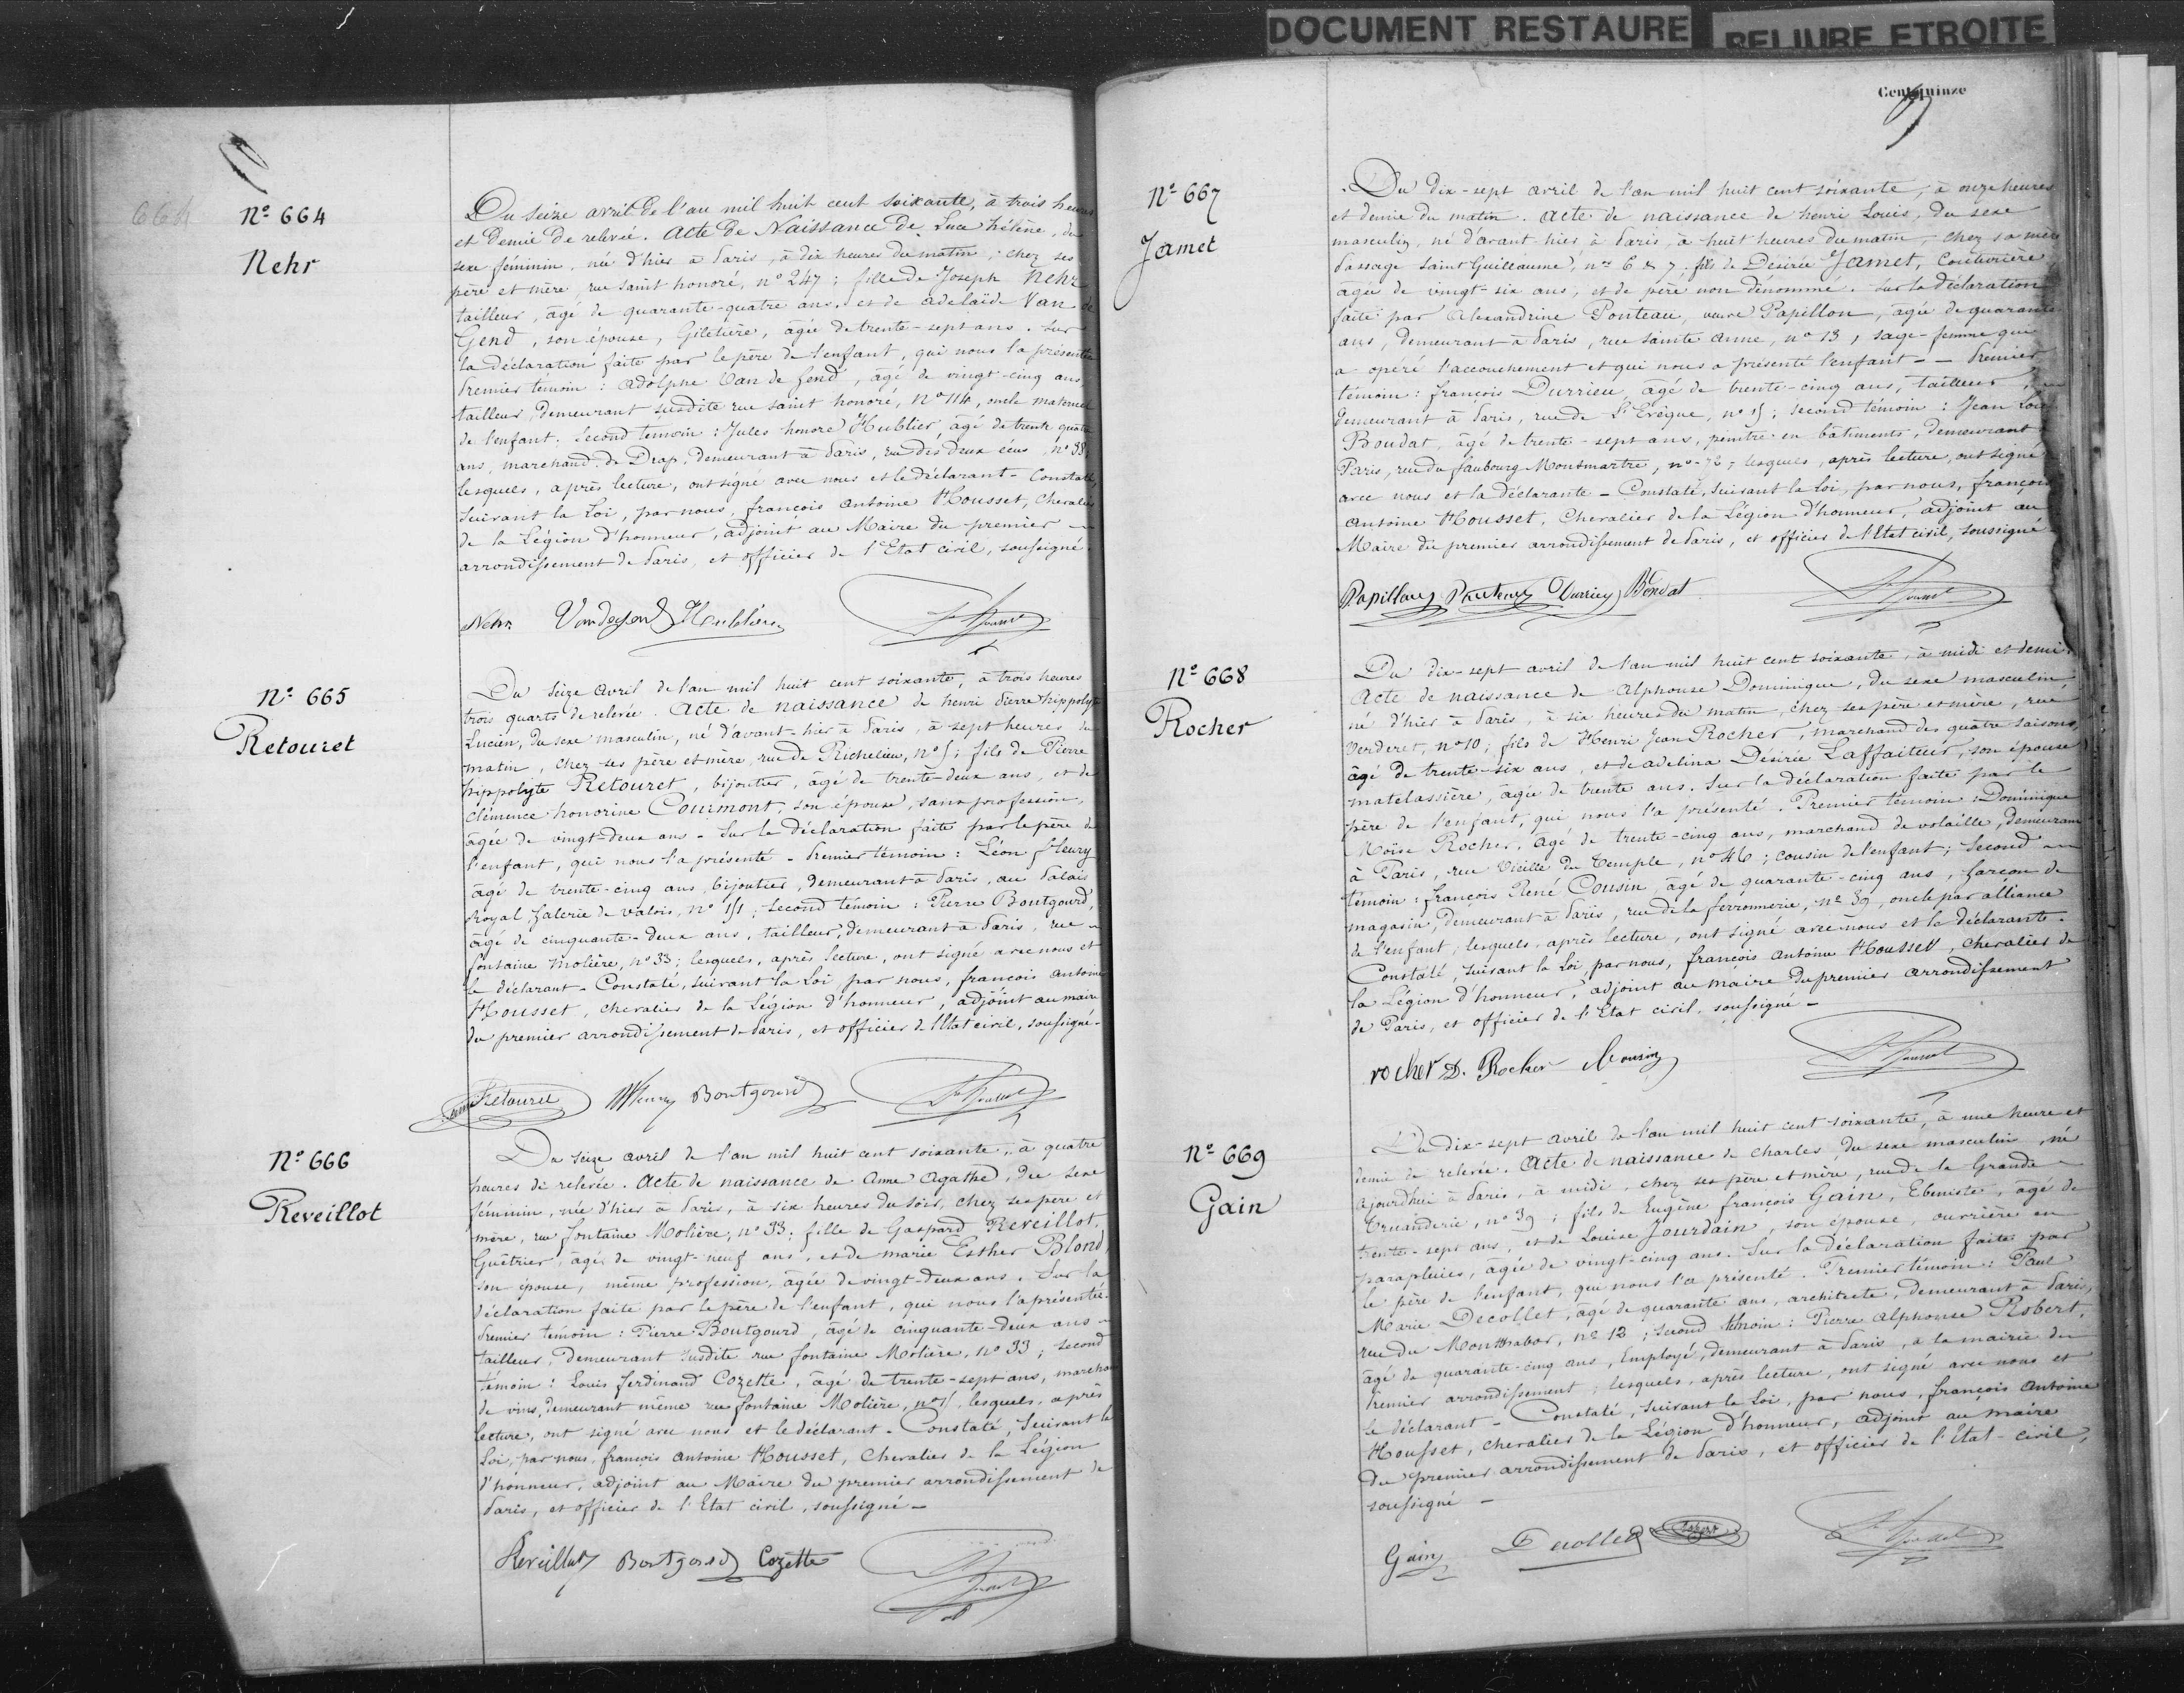 DOCUMENT RESTAURE
RELIURE ETROITE
664
Nº 664
Nehr
Du seize avril de l'an mil huit cent soixante, à trois heures
et demie de relevée. Acte de Naissance de Luce hélène, du
sexe féminin, née d'hier à Paris, à dix heures du matin, chez ses
père et mère, rue saint honoré, nº 247; fille de Joseph Nehr
tailleur, âgé de quarante-quatre ans, et de adelaïde Van de
Gend, son épouse, Giletière, âgée de trente-sept ans. Sur
la déclaration faite par le père de l'enfant, qui nous l'a présentée
Premier témoin: adolphe Van de Gend, âgé de vingt-cinq ans,
tailleur, demeurant susdite rue saint honoré, nº 114, oncle maternel
de l'enfant. Second temoin: Jules honoré Hublier, âgé de trente quatre
ans, marchand de Drap, demeurant à Paris, rue des deux écus, nº 38,
lesquels, après lecture, ont signé avec nous et le déclarant - Constaté,
suivant la Loi, par nous, françois antoine Housset, Chevalier
de la Légion d'honneur, adjoint au Maire du premier
arrondissement de Paris, et officier de l'Etat civil, soussigné.
Nehr Van de Gend Hublier
Nº 665
Retouret
Du seize avril de l'an mil huit cent soixante, à trois heures
trois quarts de relevée. Acte de naissance de henri Pierre hippolyte
Lucien, du sexe masculin, né d'avant-hier à Paris, à sept heures du
matin, chez ses père et mère, rue de Richelieu, nº 5; fils de Pierre
hippolyte Retouret, bijoutier, âgé de trente deux ans, et de
clémence honorine Courmont, son épouse, sans profession,
âgée de vingt-deux ans - Sur la déclaration faite par le père de
l'enfant, qui nous l'a présenté - Premier témoin: Léon fleury
âgé de trente-cinq ans, bijoutier, demeurant à Paris, au Palais
Royal, Galerie de valois, nº 151; second témoin: Pierre Boutgourd,
âgé de cinquante-deux ans, tailleur, demeurant à Paris, rue
fontaine molière, nº 33; lesquels, après lecture, ont signé avec nous et
le déclarant - Constaté, suivant la Loi, par nous, françois antoine
Housset, chevalier de la Légion d'honneur, adjoint au maire
du premier arrondissement de Paris, et officier de l'Etat civil, soussigné -
Retouret fleury Boutgourd
Nº 666
Reveillot
Du seize avril de l'an mil huit cent soixante, à quatre
heures de relevée. Acte de naissance de Anne Agathe, du sexe
féminin, née d'hier à Paris, à six heures du soir, chez ses père et
mère, rue fontaine Molière, nº 33; fille de Gaspard Reveillot,
Guêtrier, âgé de vingt-neuf ans, et de marie Esther Blond,
son épouse, même profession, âgée de vingt-deux ans. Sur la
déclaration faite par le père de l'enfant, qui nous l'a présentée.
Premier témoin: Pierre Boutgourd, âgé de cinquante-deux ans
tailleur, demeurant susdite rue fontaine Molière, nº 33; second
témoin: Louis ferdinand Cozette, âgé de trente-sept ans, marchand
de vins, demeurant même rue fontaine Molière, lesquels, après
lecture, ont signé avec nous et le déclarant - Constaté, suivant la
Loi, par nous, françois antoine Housset, Chevalier de la Légion
d'honneur, adjoint au Maire du premier arrondissement de
Paris, et officier de l'Etat civil, soussigné -
Reveillot Boutgourd Cozette
Cent quinze
Nº 667
Jamet
Du dix-sept avril de l'an mil huit cent soixante, à onze heures
et demie du matin. Acte de naissance de henri Louis, du sexe
masculin, né d'avant-hier à Paris, à huit heures du matin, chez sa mère
Passage saint Guillaume, nos 6 & 7, fils de Désirée Jamet, Couturière
âgée de vingt-six ans, et de père non dénommé. Sur la déclaration
faite par Alexandrine Ponteau, veuve Papillon, âgée de quarante
ans, demeurant à Paris, rue sainte anne, nº 13, sage-femme qui
a opéré l'accouchement et qui nous a présenté l'enfant - Premier
témoin: françois Durrieu, âgé de trente-cinq ans, tailleur,
demeurant à Paris, rue de L'Evêque, nº 15; second témoin: Jean Louis
Boudat, âgé de trente-sept ans, peintre en bâtiments, demeurant
Paris, rue du faubourg Montmartre, nº 72; lesquels, après lecture, ont signé
avec nous et la déclarante - Constaté, suivant la loi, par nous, françois
antoine Housset, Chevalier de la Légion d'honneur, adjoint au
Maire du premier arrondissement de Paris, et officier de l'Etat civil, soussigné
Papillon Ponteau Durrieu Boudat
Nº 668
Rocher
Du dix-sept avril de l'an mil huit cent soixante, à midi et demi.
Acte de naissance de Alphonse Dominique, du sexe masculin
né d'hier à Paris, à six heures du matin, chez ses père et mère, rue
Verderet, nº 10; fils de Henri Jean Rocher, marchand des quatre saisons,
âgé de trente-six ans, et de adelina Désirée Laffaiteur, son épouse
matelassière, âgée de trente ans. Sur la déclaration faite par le
père de l'enfant, qui nous l'a présenté. Premier témoin: Dominique
Moïse Rocher, âgé de trente-cinq ans, marchand de volaille, demeurant
à Paris, rue Vieille du Temple, nº 46; cousin de l'enfant; Second
témoin: françois René Cousin, âgé de quarante-cinq ans, garçon de
magasin, demeurant à Paris, rue de la ferronnerie, nº 39, oncle par alliance
de l'enfant; lesquels, après lecture, ont signé avec nous et le déclarant -
Constaté, suivant la Loi, par nous, françois antoine Housset, chevalier de
la Légion d'honneur, adjoint au maire du premier arrondissement
de Paris, et officier de l'Etat civil, soussigné -
rocher D. Rocher Cousin
Nº 669
Gain
Du dix-sept avril de l'an mil huit cent soixante, à une heure et
demie de relevée. Acte de naissance de charles, du sexe masculin, né
ajourdhui à Paris, à midi, chez ses père et mère, rue de la Grande
Truanderie, nº 39; fils de Eugène françois Gain, Ebeniste, âgé de
trente-sept ans, et de Louise Jourdain, son épouse, ouvrière en
parapluies, âgée de vingt-cinq ans. Sur la déclaration faite par
le père de l'enfant, qui nous l'a présenté. Premier témoin: Paul
Marie Decollet, âgé de quarante ans, architecte, demeurant à Paris,
rue du Montthabor, nº 12; second témoin: Pierre alphonse Robert,
âgé de quarante-cinq ans, Employé, demeurant à Paris, à la mairie du
Premier arrondissement; lesquels, après lecture, ont signé avec nous et
le déclarant - Constaté, suivant la Loi, par nous, françois Antoine
Housset, chevalier de la Légion d'honneur, adjoint au maire
du premier arrondissement de Paris, et officier de l'Etat-civil,
soussigné -
Gain Decollet Robert